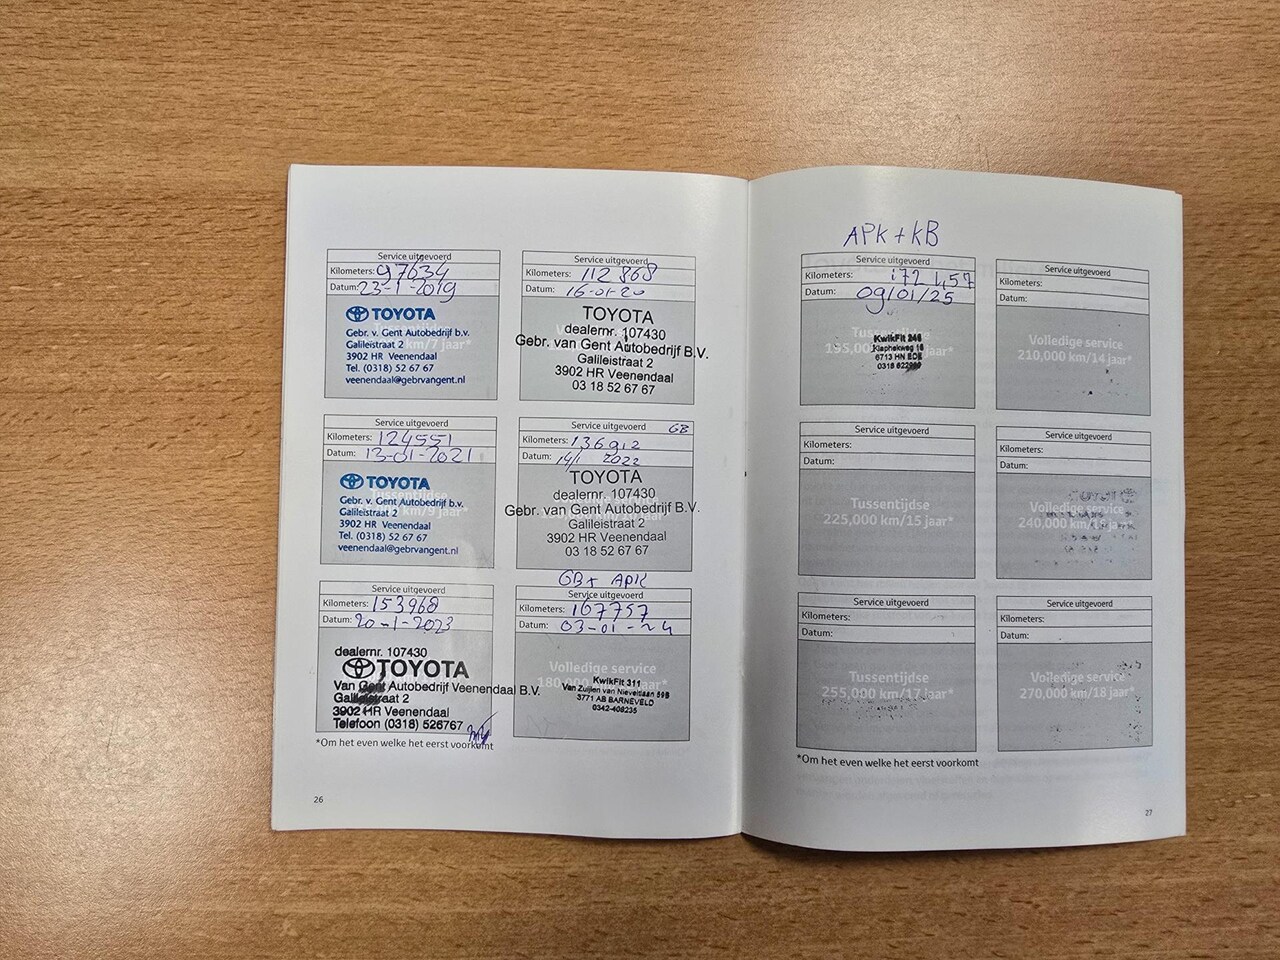 Service uitgevoerd
Kilometers: 97634
Datum: 23-1-2019
Tussentijdse
km/7 jaar*
TOYOTA
Gebr. v. Gent Autobedrijf b.v.
Galileistraat 2
3902 HR Veenendaal
Tel. (0318) 52 67 67
veenendaal@gebrvangent.nl
Service uitgevoerd
Kilometers: 112868
Datum: 16-01-20
TOYOTA
dealernr. 107430
Gebr. van Gent Autobedrijf B.V.
Galileistraat 2
3902 HR Veenendaal
03 18 52 67 67
Service uitgevoerd
Kilometers: 124551
Datum: 13-01-2021
Tussentijdse
km/9 jaar*
TOYOTA
Gebr. v. Gent Autobedrijf b.v.
Galileistraat 2
3902 HR Veenendaal
Tel. (0318) 52 67 67
veenendaal@gebrvangent.nl
Service uitgevoerd GB
Kilometers: 136912
Datum: 14/1 2022
TOYOTA
dealernr. 107430
Gebr. van Gent Autobedrijf B.V.
Galileistraat 2
3902 HR Veenendaal
03 18 52 67 67
Service uitgevoerd
Kilometers: 153968
Datum: 20-1-2023
dealernr. 107430
TOYOTA
Van Gent Autobedrijf Veenendaal B.V.
Galileistraat 2
3902 HR Veenendaal
Telefoon (0318) 526767
GB+ APK
Service uitgevoerd
Kilometers: 167757
Datum: 03-01-24
Volledige service
180,000 km/12 jaar*
KwikFit 311
Van Zuijlen van Nieveltlaan 59B
3771 AB BARNEVELD
0342-408235
*Om het even welke het eerst voorkomt
26
APK + KB
Service uitgevoerd
Kilometers: 172 1,57
Datum: 09/01/25
Tussentijdse
195,000 jaar*
KwikFit 246
Klaphekweg 16
6713 HN EDE
0318
Service uitgevoerd
Kilometers:
Datum:
Volledige service
210,000 km/14 jaar*
Service uitgevoerd
Kilometers:
Datum:
Tussentijdse
225,000 km/15 jaar*
Service uitgevoerd
Kilometers:
Datum:
Volledige service
240,000 km/16 jaar*
Service uitgevoerd
Kilometers:
Datum:
Tussentijdse
255,000 km/17 jaar*
Service uitgevoerd
Kilometers:
Datum:
Volledige service
270,000 km/18 jaar*
*Om het even welke het eerst voorkomt
27